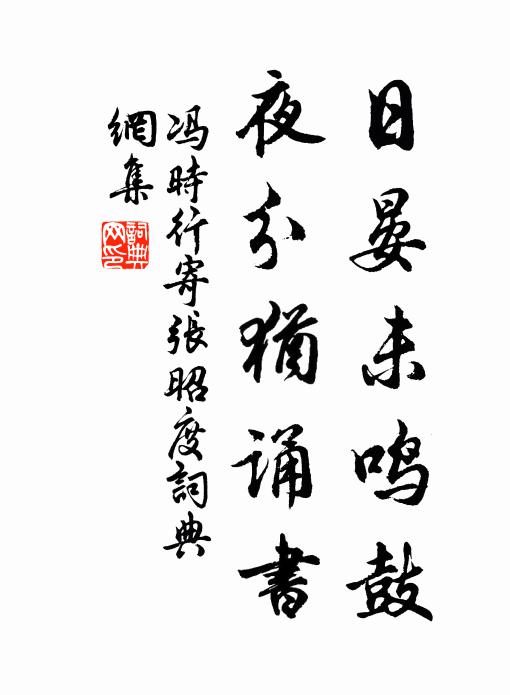 日晏未鸣鼓
夜分猶诵書
冯時行寄張昭度詞典
網集
詞典
网印